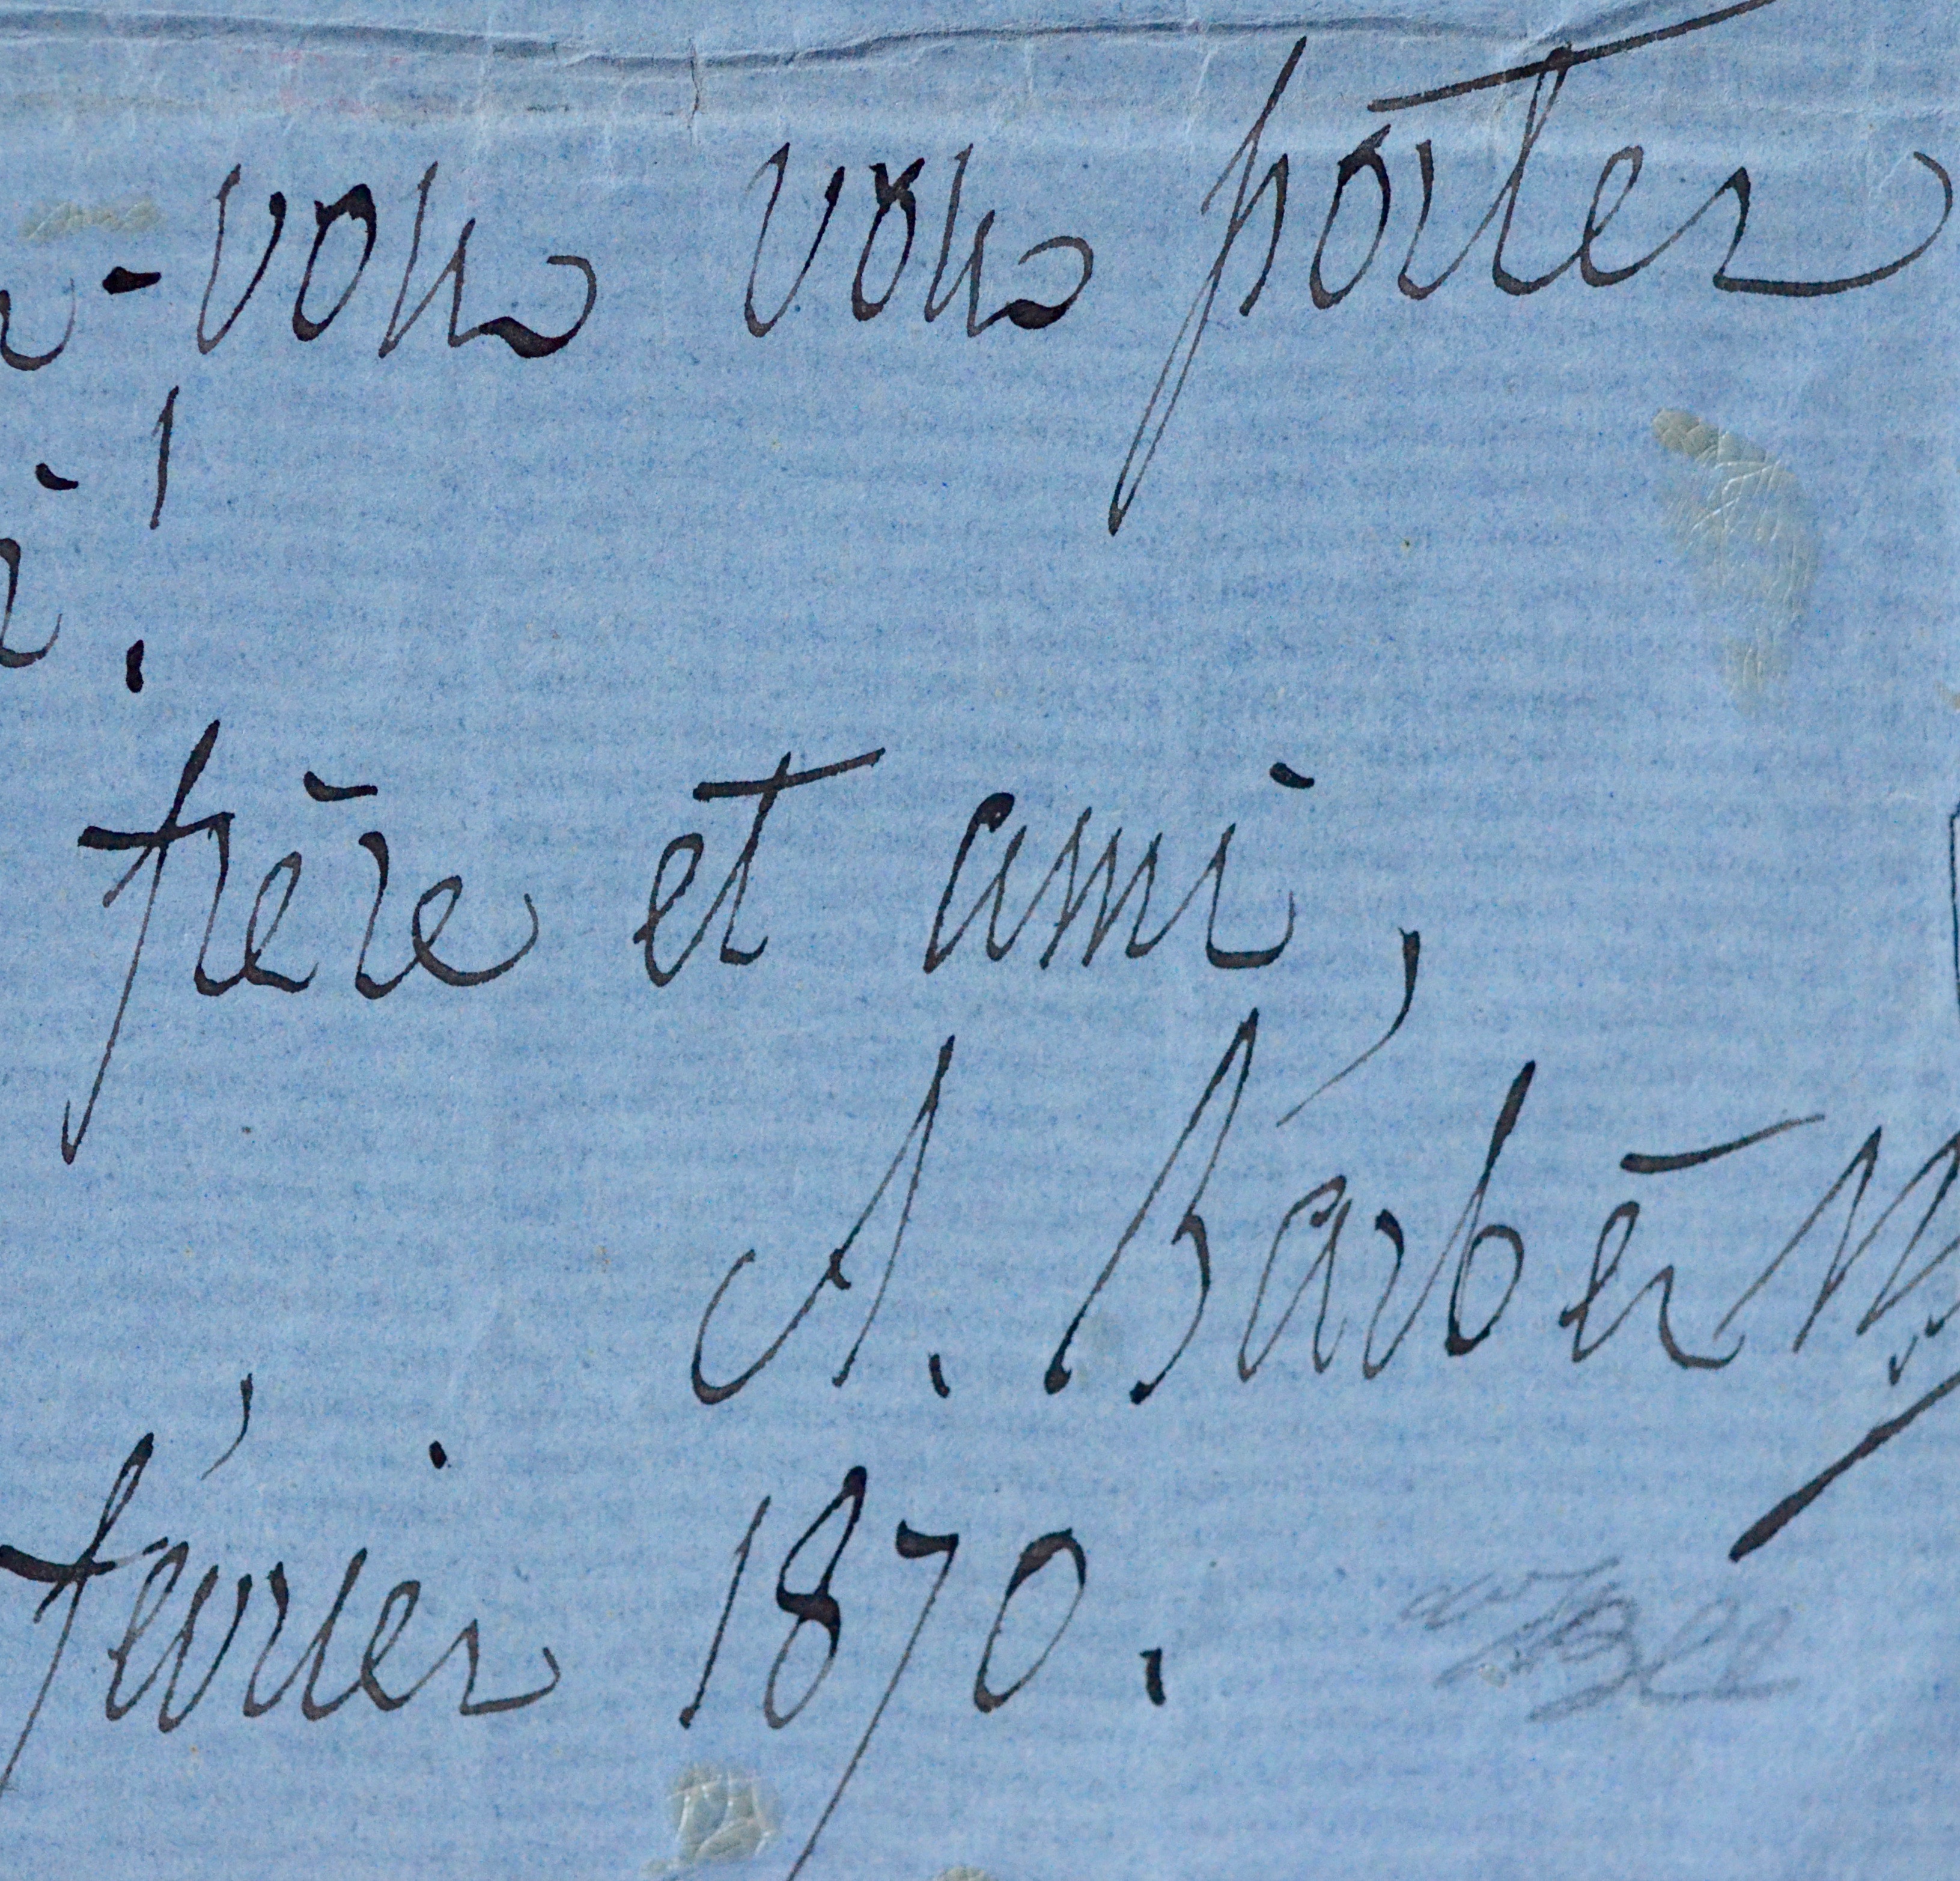 -vous vous porter
!
frère et ami,
A. Barbe
février 1870.